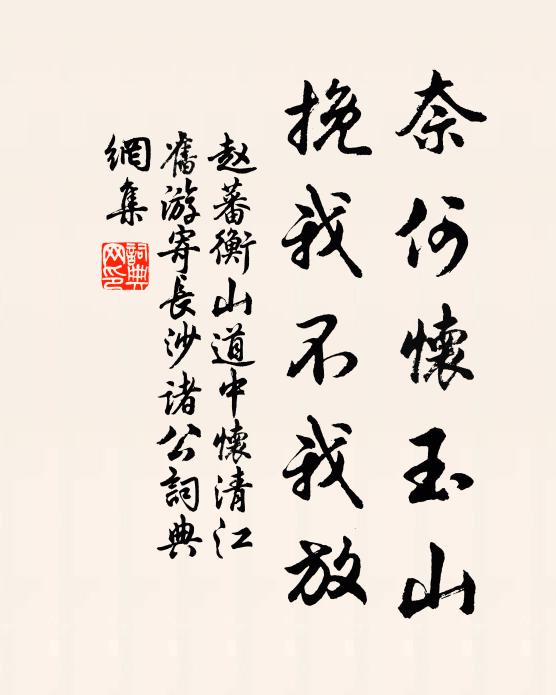 奈何懷玉山
挽我不我放
赵蕃衡山道中懷清江
舊游寄長沙诸公詞典
網集
詞典网印